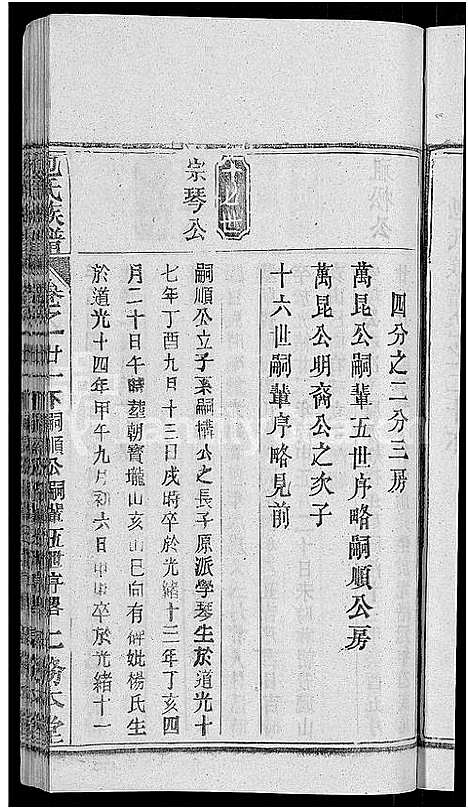 四分之二分三房
萬昆公嗣輩五世序略嗣順公房
萬昆公明裔公之次子
十六世嗣輩序略見前
十七世
宗琴公
嗣順公立子系嗣構公之長子原派學琴生於道光十
七年丁酉九月十三日戌時卒於光緒十三年丁亥四
月二十日午時葬朝寶壠山亥山巳向有碑妣楊氏生
於道光十四年甲午九月初六日申時卒於光緒十一
氏族譜
卷之一廿一下嗣順公嗣輩五世序略
堂